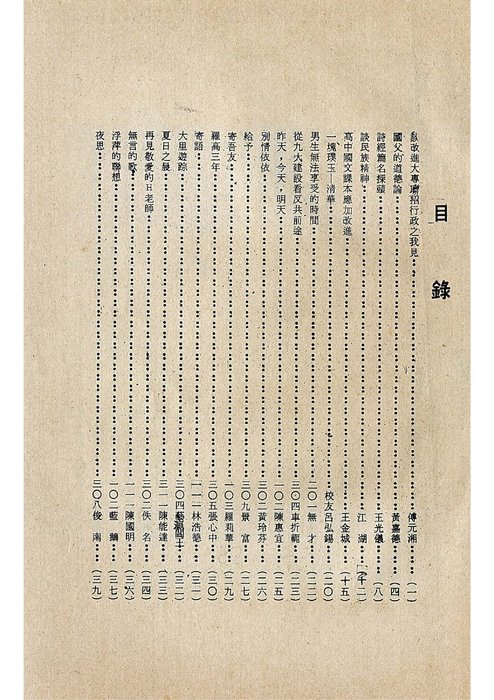 目錄
改進大專聯招行政之我見 傅元湘 (一)
國父的道德論 黃嘉德 (四)
詩經篇名探頤 王光儀 (八)
談民族精神 江湖 (十二)
高中國文課本應加改進 王金城 (十五)
一塊璞玉—清華 校友呂弘錫 (二〇)
男生無法享受的時間 二〇一無才 (二二)
從九大建設看反共前途 三〇四車折 (二三)
昨天,今天,明天 一〇一陳惠宜 (二五)
別情依依 三〇二黃玲芬 (二六)
給予 三〇九景富 (二七)
寄吾友 一〇三羅莉華 (二九)
羅高三年 三〇五張心中 (三〇)
寄語 一一一林浩德 (三一)
大里遊踪 三〇四藝 (三二)
夏日之晨 三一一陳能達 (三三)
再見敬愛的H老師 三〇二佚名 (三四)
無言的歌 一一一陳國明 (三六)
浮萍的聯想 一〇一藍鵝 (三七)
夜思 三〇八俊南 (三九)